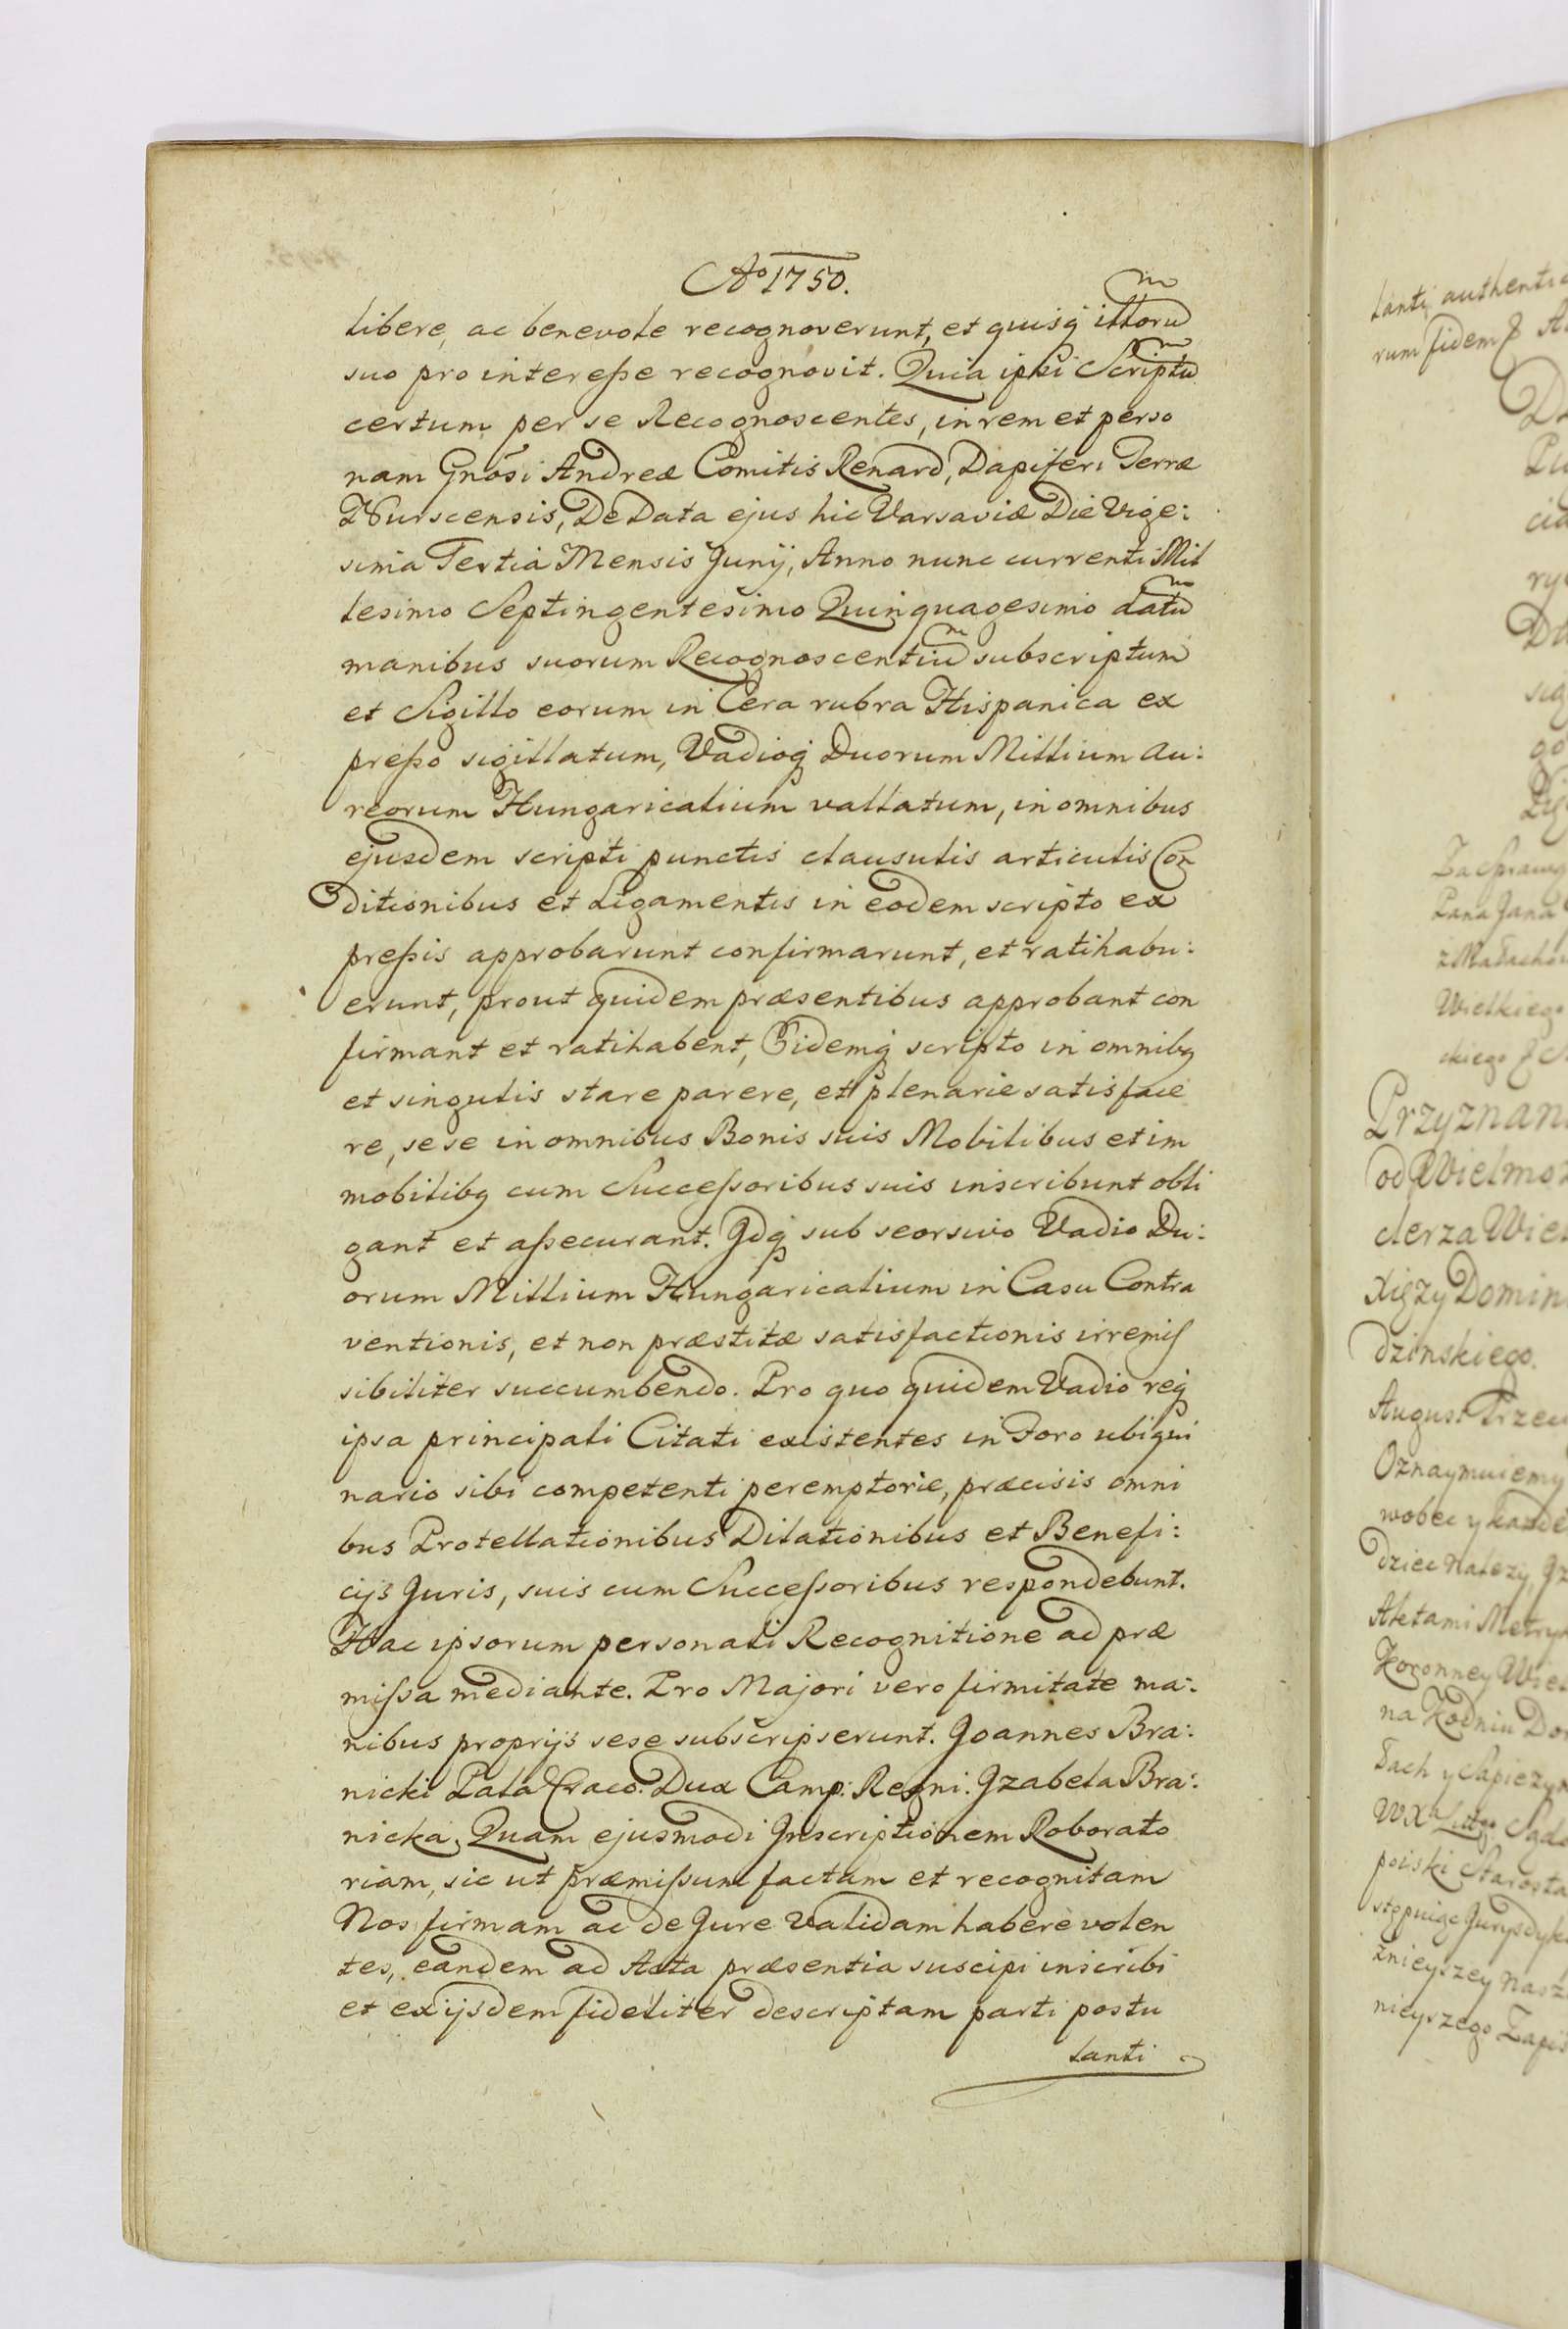 Ao 1750.
libere, ac benevole recognoverunt, et quisq illorum
suo pro interesse recognovit. Quia ipsi Scriptum
certum per se Recognoscentes, in rem et perso
nam Gnosi Andreæ Comitis Renard, Dapiferi Terræ
Nurscensis, De Data ejus hic Varsaviæ Die Vige:
sima Tertia Mensis Junij, Anno nunc currenti Mil
lesimo Septingentesimo Quinquagesimo datum
manibus suorum Recognoscentium subscriptum
et Sigillo eorum in Cera rubra Hispanica ex
presso sigillatum, Vadioq Duorum Millium Au:
reorum Hungaricalium vallatum, in omnibus
ejusdem scripti punctis clausulis articulis Con
ditionibus et Ligamentis in eodem scripto ex
pressis approbarunt confirmarunt, et ratihabu:
erunt, prout quidem præsentibus approbant con
firmant et ratihabent, Eidemq scripto in omnibq
et singulis stare parere, et plenarie satisface
re, sese in omnibus Bonis suis Mobilibus et im
mobilibq cum Successoribus suis inscribunt obli
gant et assecurant. Idq sub seorsivo Vadio Du:
orum Millium Hungaricalium in Casu Contra
ventionis, et non præstitæ satisfactionis irremis
sibiliter succumbendo. Pro quo quidem Vadio req
ipsa principali Citati existentes in Foro ubiqui
nario sibi competenti peremptorie, præcisis omni
bus Protellationibus Dilationibus et Benefi:
cijs Juris, suis cum Successoribus respondebunt.
Hac ipsorum personali Recognitione ad præ
missa mediante. Pro Majori vero firmitate ma:
nibus proprijs sese subscripserunt. Joannes Bra:
nicki Pala Craco: Dux Camp: Regni. Izabela Bra:
nicka, Quam ejusmodi Inscriptionem Roborato
riam, sic ut præmissum factam et recognitam
Nos firmam ac de Jure Validam habere volen
tes, eandem ad Acta præsentia suscipi inscribi
et ex ijsdem fideliter descriptam parti postu
lanti
lanti authentic
rum fidem
Przyznan
od Wielmoż
derza Wiel
Xięży Domin
dzinskiego.
August Trzeci
Oznaymuiemy
wobec y każde
dziec należy, Iz
Aktami Metryk
Koronney Wiel
na Kodniu Do
łach y Sapieżyn
WXa Littgo Sąd
poiski Starosta
stępuiąc Jurysdyk
żnieyszey nasz
nieyszego Zapis